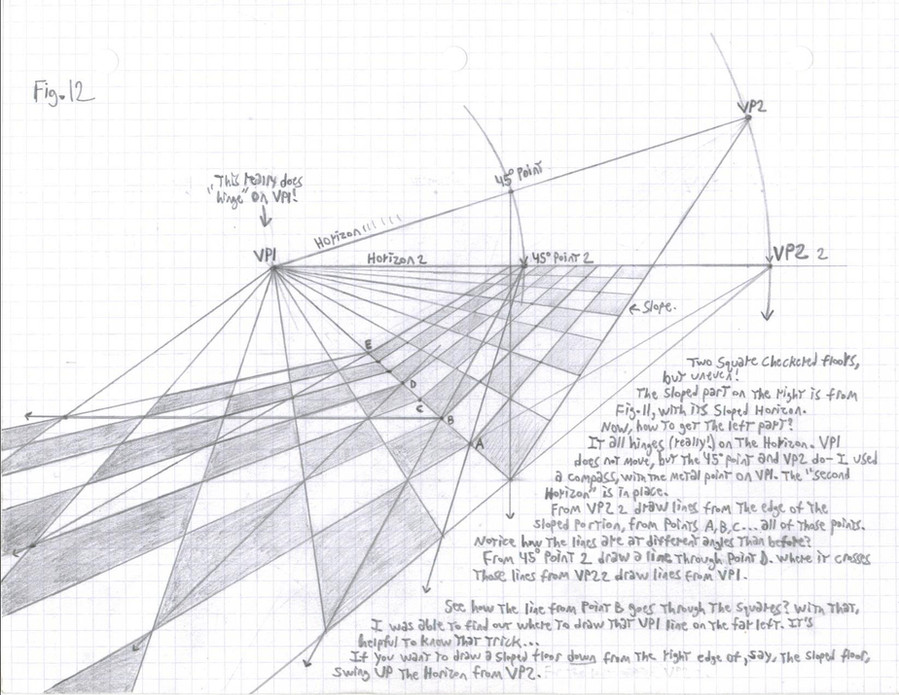 Fig.12
VP2
45° Point
"This really does
hinge" on VP1!
Horizon
VP1
Horizon 2
45° Point 2
VP2 2
← Slope.
E
D
C
B
A
Two Square Checkered floors,
but uneven!
The sloped part on the right is from
Fig.11, with its Sloped Horizon.
Now, how to get the left part?
It all hinges (really!) on the Horizon. VP1
does not move, but the 45° point and VP2 do- I used
a compass, with the metal point on VP1. The "second
Horizon" is in place.
From VP2 2 draw lines from the edge of the
sloped portion, from Points A,B,C...all of those points.
Notice how the lines are at different angles than before?
From 45° Point 2 draw a line through Point D. Where it crosses
those lines from VP22 draw lines from VP1.
See how the line from Point B goes through the squares? With that,
I was able to find out where to draw that VP1 line on the far left. It's
helpful to know that trick...
If you want to draw a sloped floor down from the right edge of, say, the sloped floor,
swing UP the Horizon from VP2.